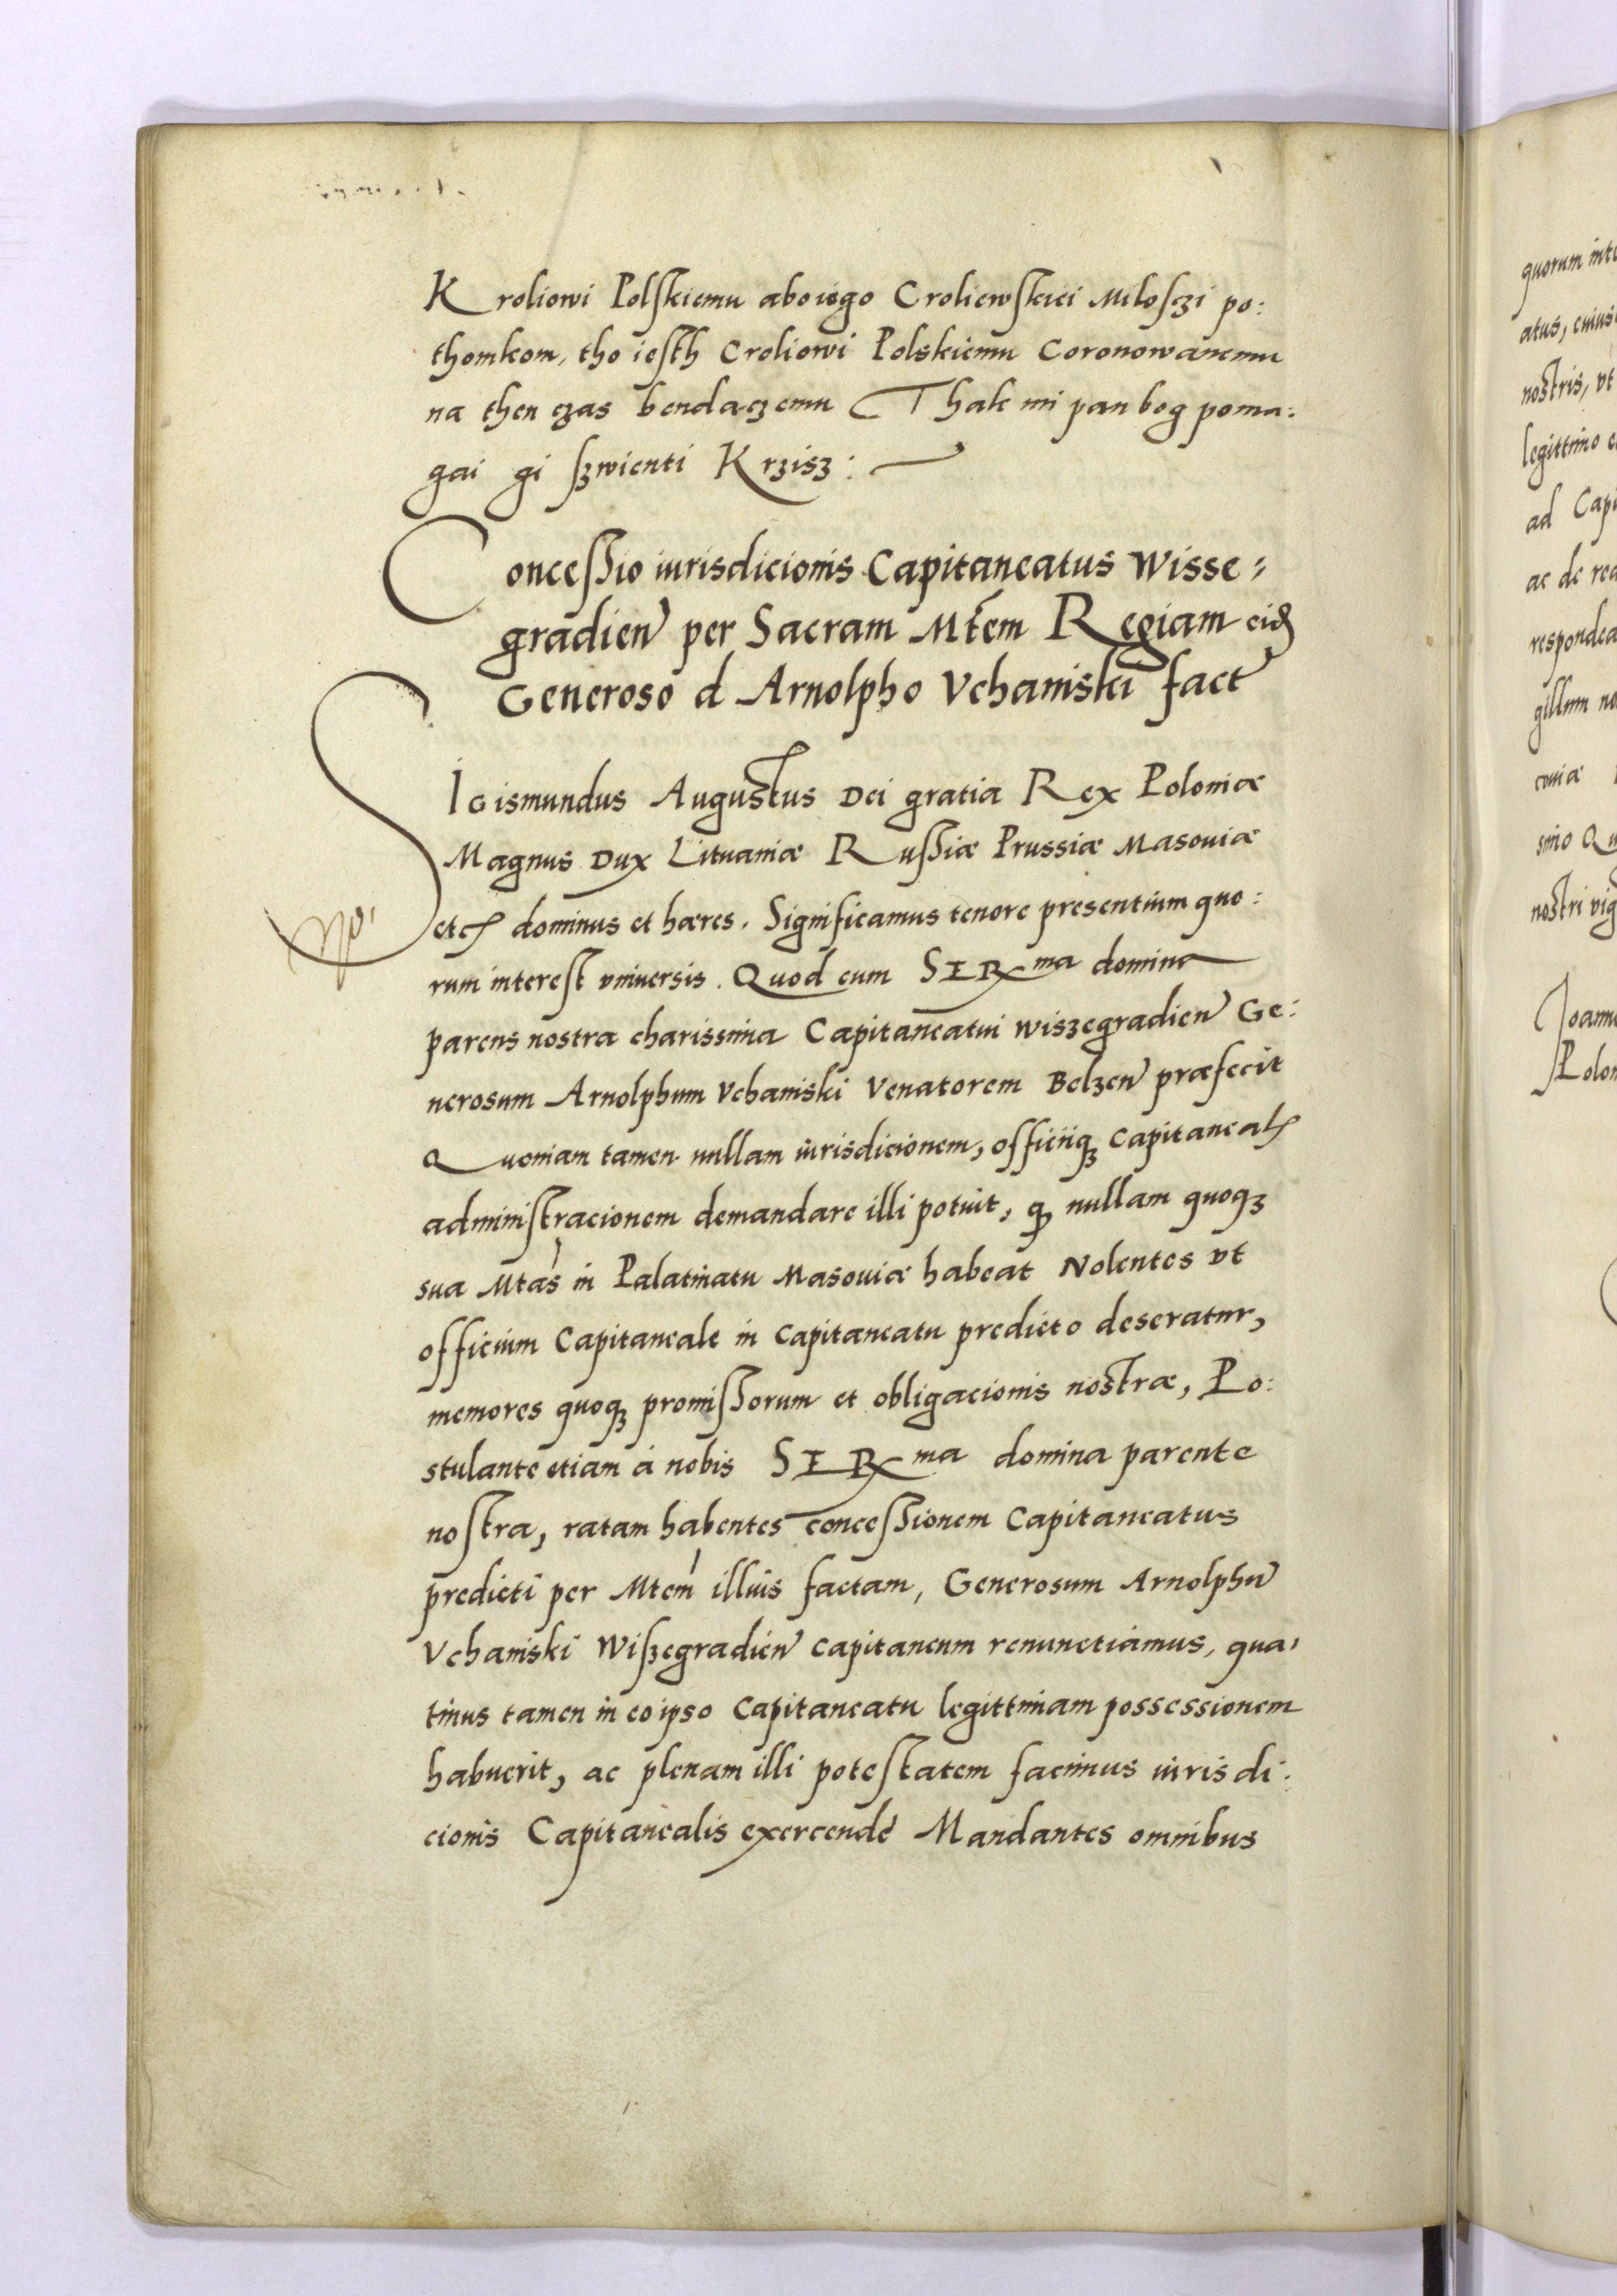 Kroliowi Polskiemu abo iego Croliewskiei Miłosczi po:
thomkom, tho iesth Croliowi Polskiemu Coronowanemu
na then czas bendaczemu Thak mi pan bog poma:
gai gi szwienti Krzisz:
Concessio iurisdicionis Capitaneatus Wisse:
gradien̄ per Sacram Mtem Regiam eid
Generoso d Arnolpho Vchanski fact
SIGismundus Augustus Dei gratia Rex Poloniæ
Magnus Dux Lituaniæ Russiæ Prussiæ Masouiæ
etc dominus et hæres. Significamus tenore presentium quo:
rum interest vniuersis. Quod cum SERma domina
parens nostra charissima Capitaneatui wiszegradien̄ Ge:
nerosum Arnolphum Vchanski Venatorem Belzen̄ præfecit
Quoniam tamen nullam iurisdicionem, officiiqȝ capitaneal
administracionem demandare illi potuit, qȝ nullam quoqȝ
sua Mtas in Palatinatu Masouiæ habeat Nolentes vt
officium Capitaneale in Capitaneatu predicto deseratur,
memores quoqȝ promissorum et obligacionis nostræ, Po:
stulante etiam á nobis SERma domina parente
nostra, ratam habentes concessionem Capitaneatus
predicti per Mtem illius factam, Generosum Arnolphū
Vchanski Wiszegradien̄ capitaneum renunctiamus, qua,
tinus tamen in eo ipso Capitaneatu legittimam possessionem
habuerit, ac plenam illi potestatem facimus iurisdi:
cionis Capitanealis exercende Mandantes omnibus
quorum inte
atus, cuius
nostris, vt
legittimo
ad Capi
ac de rea
respondea
gillum no
couiæ
simo Qu
nostri vig
Joann
Polon